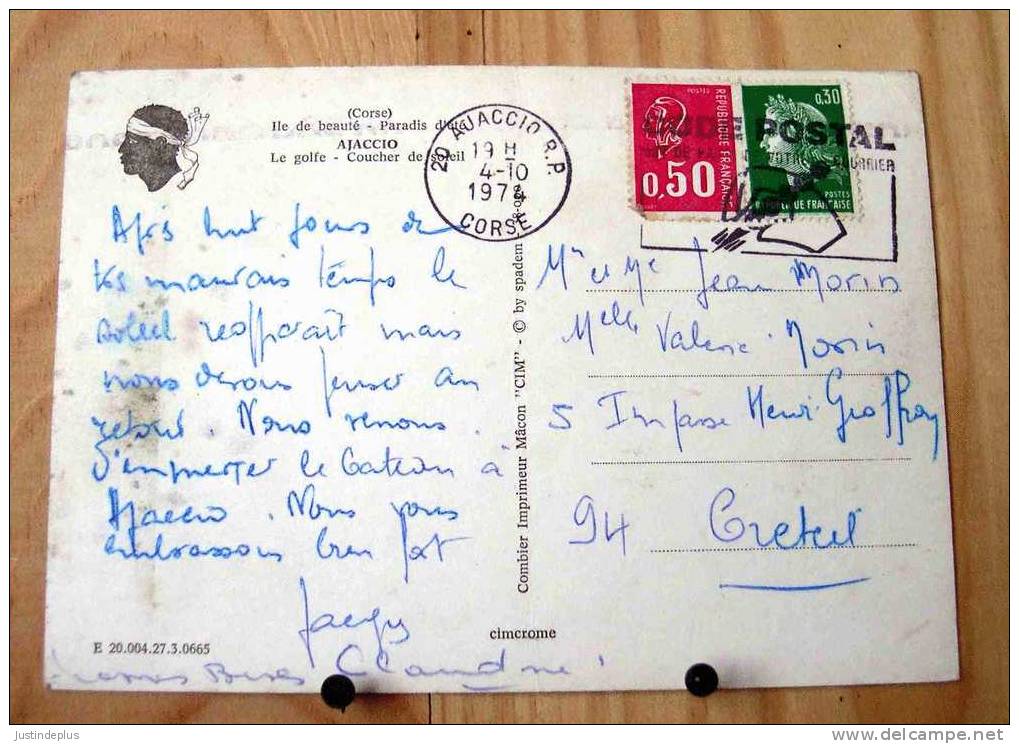 (Corse)
Ile de beauté - Paradis d'été
AJACCIO
Le golfe - Coucher de soleil
20 AJACCIO R.P.
19 H
4-10
1974
CORSE
POSTES
REPUBLIQUE FRANÇAISE
0,50
0,30
POSTES
REPUBLIQUE FRANÇAISE
CODE POSTAL
Après huit jours de
très mauvais temps le
soleil réapparaît mais
nous devons penser au
retour. Nous venons
d'emprunter le bateau à
Ajaccio. Nous vous
embrassons bien fort
Jacques
Bises Claudine
Mr et Me Jean Morin
Melle Valerie Morin
5 Impasse Henri Geoffroy
94 Creteil
Combier Imprimeur Mâcon "CIM" - © by spadem
cimcrome
E 20.004.27.3.0665
justindeplus
http://www.delcampe.net